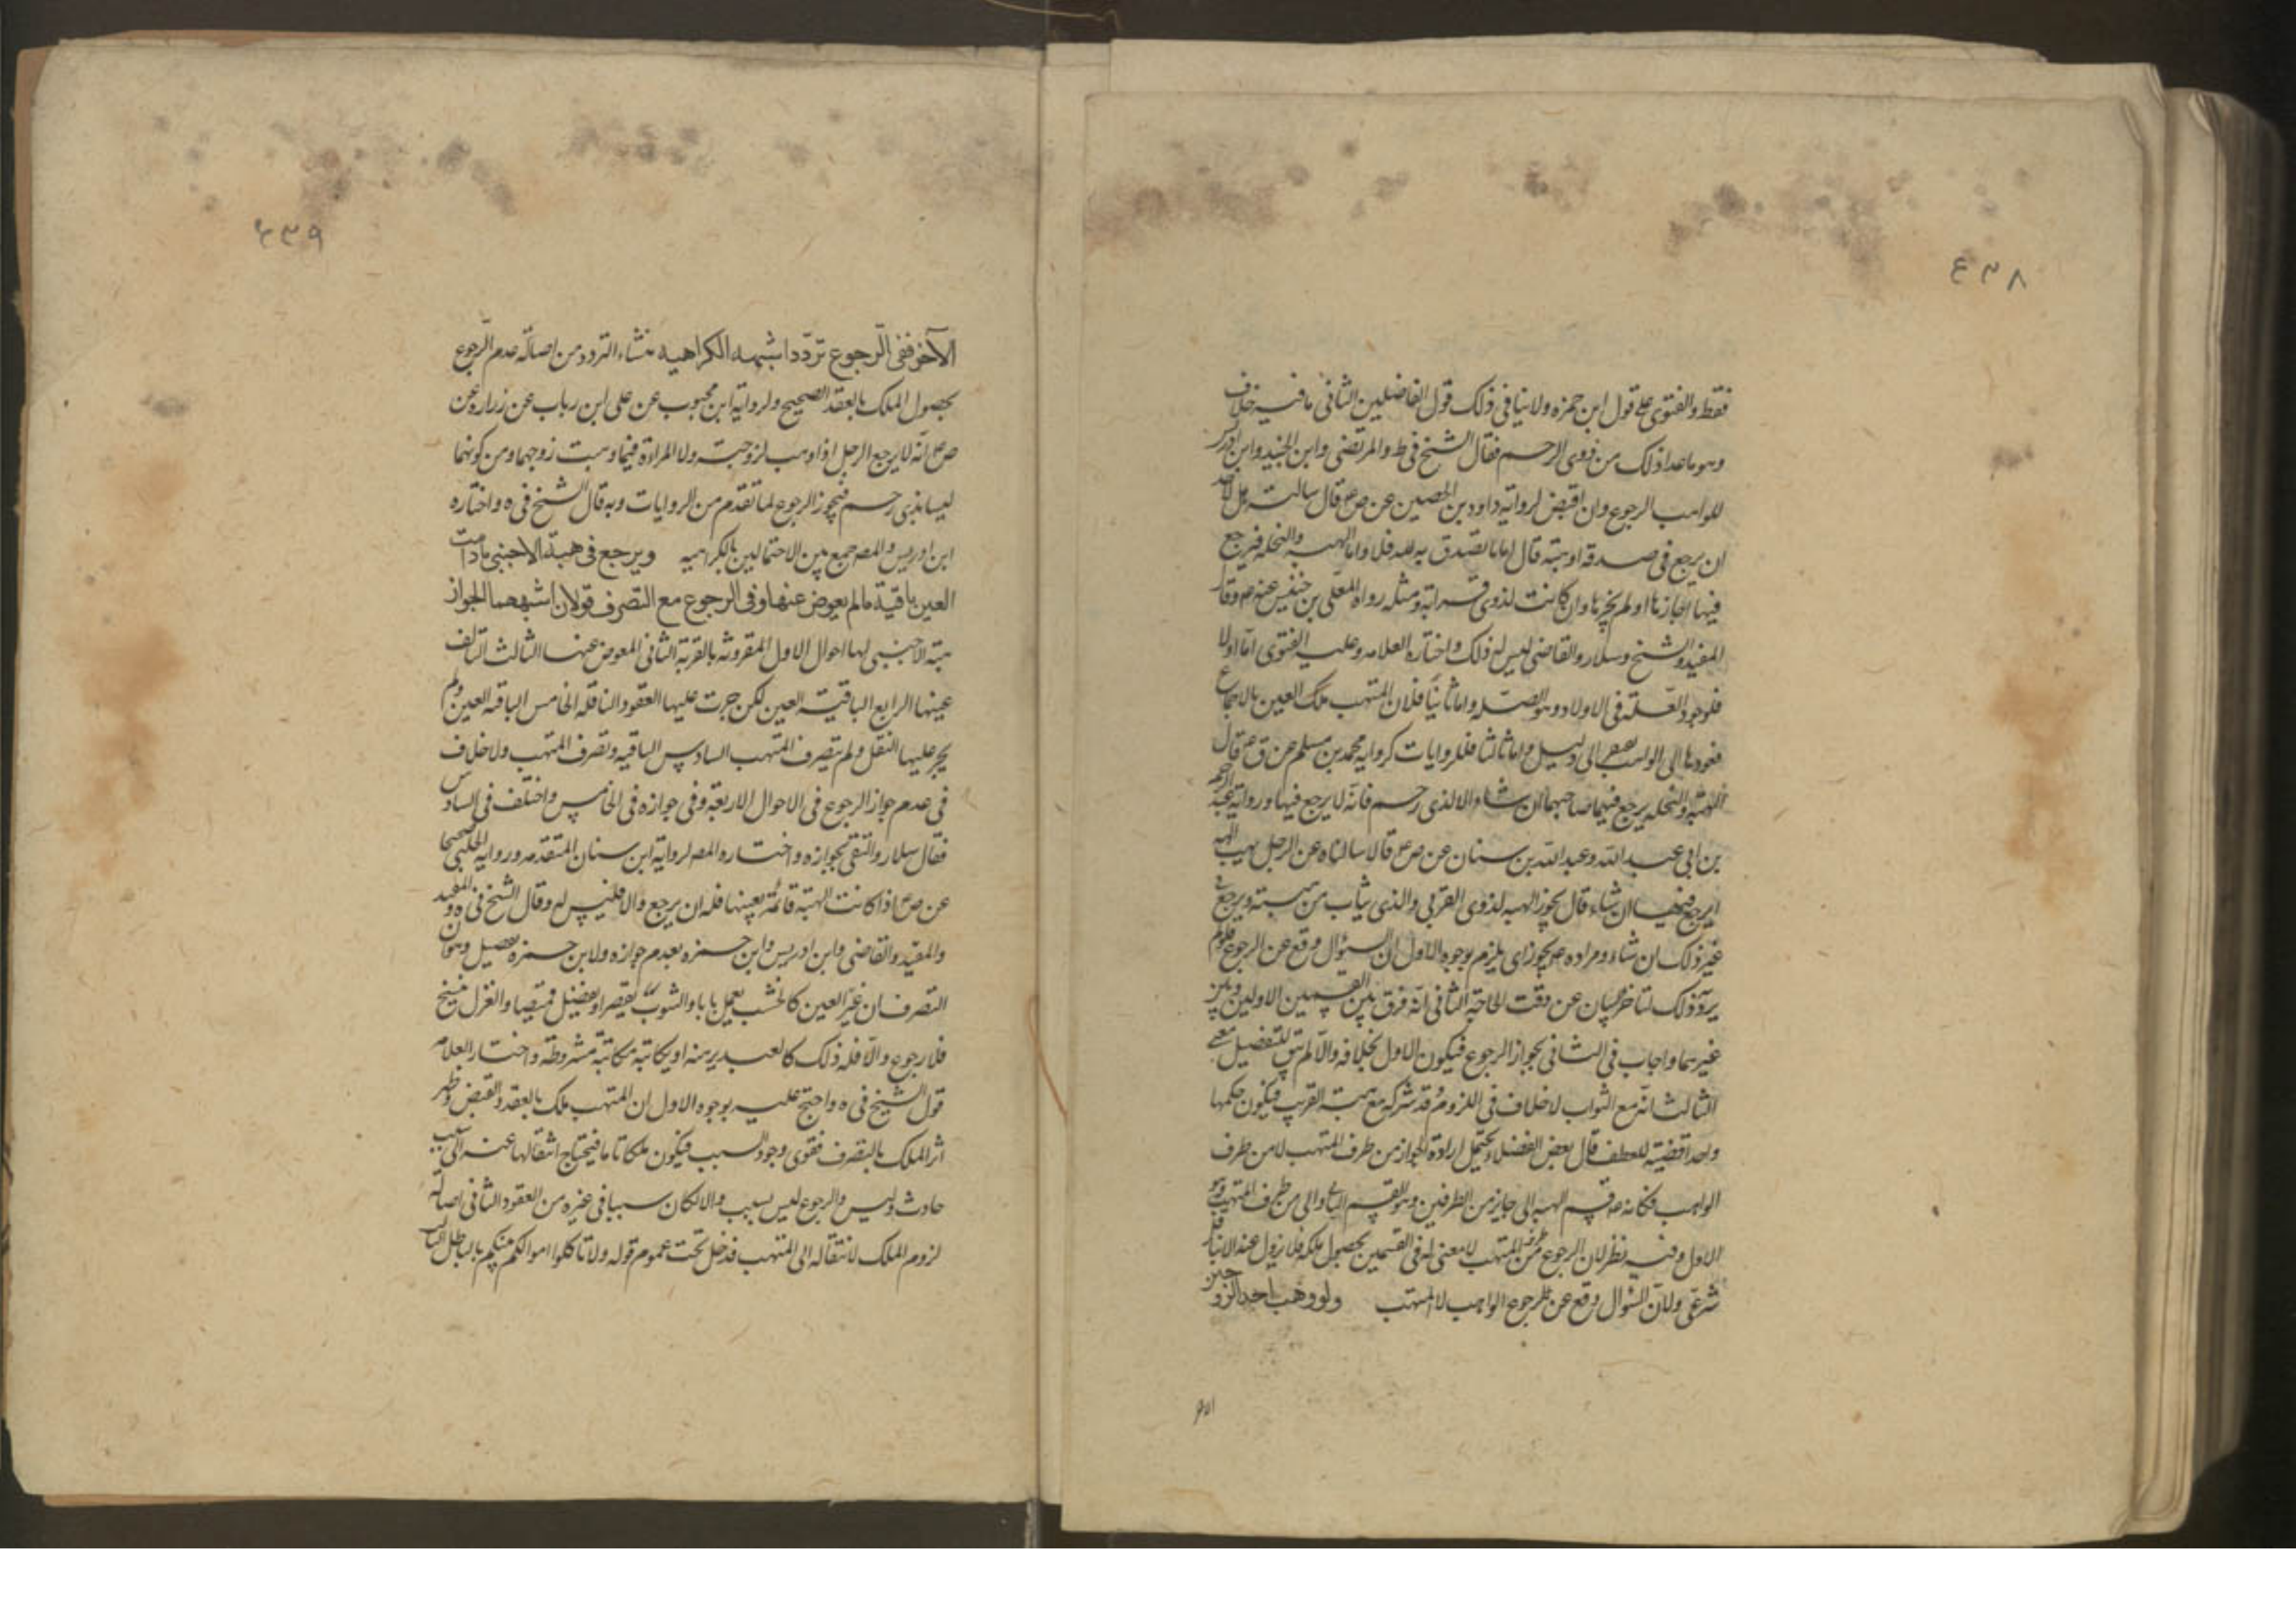 ٤٣٨
فقط والفتوى على قول ابن حمزه ولا ينافى ذلك قول الفاضلين الثانى ما فيه خلاف
وهو ما عدا ذلك من ذوى الرحم فقال الشيخ فى ط والمرتضى وابن الجنيد وابن ادريس
للواهب الرجوع وان اقبض لرواية داود بن الحصين عن ص ع قال سالته هل لاحد
ان يرجع فى صدقة او هبة قال اما ما تصدق به لله فلا واما الهبه والنحله فيرجع
فيها اجازها او لم يحزها وان كانت لذوى قرابة ومثله رواه المعلى بن خنيس عنه ع وقال
المفيد والشيخ وسلار والقاضى ليس له ذلك واختاره العلامه وعليه الفتوى اما اولا
فلوجود العلة فى الاولاد وهو الصله واما ثانيا فلان المتهب ملك العين بالاجماع
فعودها الى الواهب الى دليل واما ثالثا فللروايات كروايه محمد بن مسلم عن ق ع قال
الهبة والنحله يرجع فيها صاحبها ان شاء الا لذى رحم فانه لا يرجع فيها ورواية عبد الرحمن
بن ابى عبد الله وعبد الله بن سنان عن ص ع قالا سالناه عن الرجل يهب الهبه
ايرجع فيها ان شاء قال يجوز الهبه لذوى القربى والذى يثاب من هبته ويرجع فى
غير ذلك ان شاء ومراده ع يجوز اى يلزم بوجوه الاول ان السؤال وقع عن الرجوع فلو لم
يرد ذلك لتاخر البيان عن وقت الحاجة الثانى انه فرق بين القسمين الاولين وبين
غيرهما واجاب فى الثانى بجواز الرجوع فيكون الاول بخلافه والا لم يبق للتفصيل معنى
الثالث انه مع الثواب لا خلاف فى اللزوم وقد شركه مع هبة القريب فيكون حكمها
واحدا قضية للعطف قال بعض الفضلاء يحتمل ارادة الجواز من طرف المتهب لا من طرف
الواهب فكانه ع قسم الهبه الى جايز من الطرفين وهو القسم الثانى والى من طرف المتهب وهو
الاول وفيه نظر لان الرجوع من طرف المتهب لا معنى له فى القسمين بحصول ملكه فلا يزول عنه الا بناقل
شرعى ولان السؤال وقع عن رجوع الواهب لا المتهب ولو وهب احد الزوجين
الاخر
٤٣٩
الآخر ففى الرجوع تردد اشبهه الكراهيه منشاء التردد من اصالة عدم الرجوع
بحصول الملك بالعقد الصحيح ولرواية ابن محبوب عن على ابن رباب عن زراره عن
ص ع انه لا يرجع الرجل اذا وهب لزوجته ولا المراءة فيما وهبت زوجها ومن كونهما
ليسا بذى رحم فيجوز الرجوع لما تقدم من الروايات وبه قال الشيخ فى ه واختاره
ابن ادريس والمصه جمع بين الاحتمالين بالكراهيه ويرجع فى هبة الاجنبى ما دامت
العين باقية ما لم يعوض عنها وفى الرجوع مع التصرف قولان اشبههما الجواز
هبة الاجنبى لها احوال الاول المقرونه بالقربة الثانى المعوض عنها الثالث التالف
عينها الرابع الباقية العين لكن جرت عليها العقود الناقله الخامس الباقيه العين ولم
يجر عليها النقل ولم يتصرف المتهب السادس الباقيه وتصرف المتهب ولا خلاف
فى عدم جواز الرجوع فى الاحوال الاربعة وفى جوازه فى الخامس واختلف فى السادس
فقال سلار والتقى بجوازه واختاره المصه لرواية ابن سنان المتقدمه وروايه الحلبى صحيحا
عن ص ع اذا كانت الهبة قائمة بعينها فله ان يرجع والا فليس له وقال الشيخ فى ه و
والمفيد والقاضى وابن ادريس وابن حمزه بعدم جوازه ولابن حمزه تفصيل وهو ان
التصرف ان غير العين كالخشب يعمل بابا والثوب يقصر او يفصل قميصا والغزل ينسج
فلا رجوع والا فله ذلك كالعبد يرهنه او يكاتبه مكاتبة مشروطة واختار العلامه
قول الشيخ فى ه واحتج عليه بوجوه الاول ان المتهب ملك بالعقد والقبض وظهر
اثر الملك بالتصرف فقوى وجود السبب فيكون ملكا تاما فيحتاج انتقالها عنه الى سبب
حادث وليس والرجوع ليس بسبب والا لكان سببا فى غيره من العقود الثانى اصالة
لزوم الملك لانتقاله الى المتهب فدخل تحت عموم قوله ولا تاكلوا اموالكم بينكم بالباطل الثالث